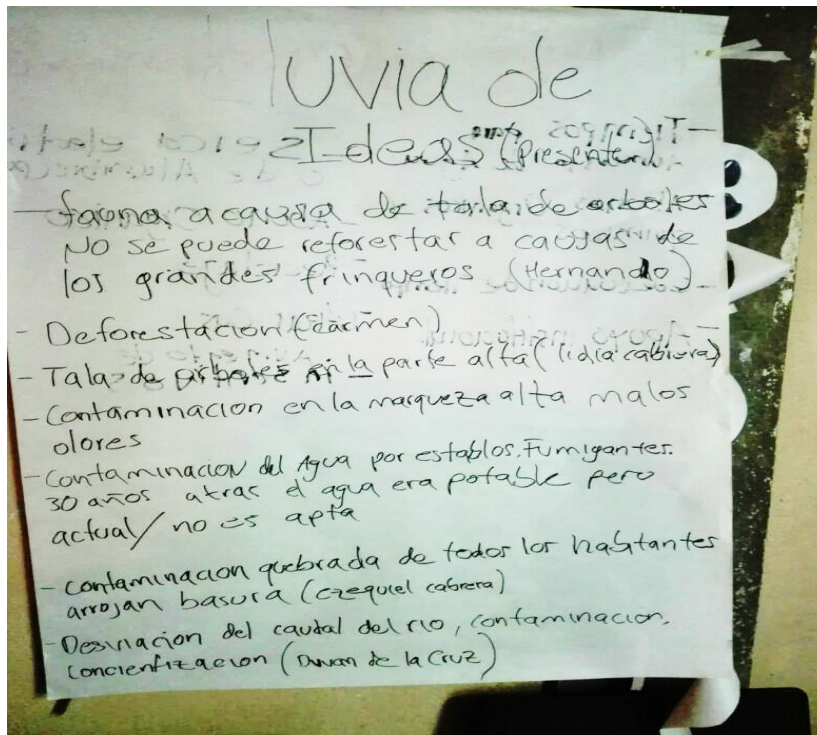 lluvia de
Ideas (Presenten)
- fauna a causa de tala de arboles
No se puede reforestar a causas de
los grandes frinqueros (Hernando)
- Deforestacion (carmen)
- Tala de arboles en la parte alta (lidia cabrera)
- Contaminacion en la marqueza alta malos
olores
- Contaminacion del Agua por establos. Fumigantes.
30 años atras el agua era potable pero
actual/no es apta
- contaminacion quebrada de todos los habitantes
arrojan basura (ezequiel cabrera)
- Desviacion del caudal del rio, contaminacion.
concientizacion (Duvan de la Cruz)